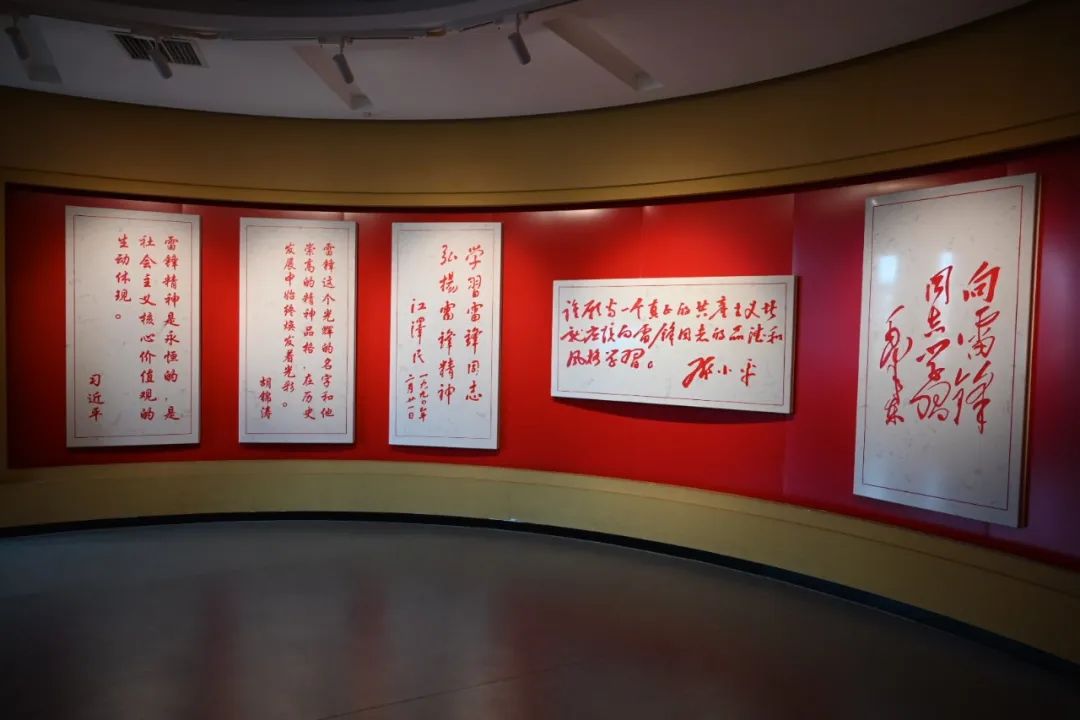 雷锋精神是永恒的，是
社会主义核心价值观的
生动体现。
习近平
雷锋这个光辉的名字和他
崇高的精神品格，在历史
发展中始终焕发着光彩。
胡锦涛
学習雷鋒同志
弘揚雷鋒精神
江澤民
一九九〇年
二月廿一日
谁愿当一个真正的共產主义者
就应该向雷锋同志的品德和
风格学習。
邓小平
向雷锋
同志学習
毛泽东